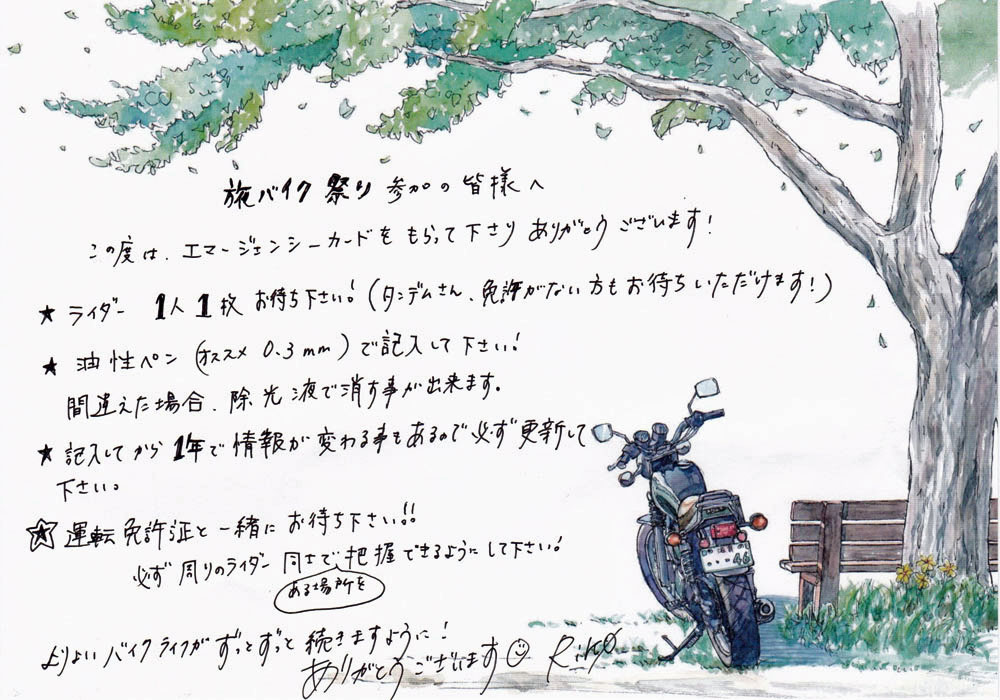 旅バイク祭り 参加の皆様へ
この度は、エマージェンシーカードをもらって下さりありがとうございます!
★ ライダー 1人1枚 お待ち下さい!(タンデムさん、免許がない方もお待ちいただけます!)
★ 油性ペン(オススメ 0.3mm)で記入して下さい!
間違えた場合、除光液で消す事が出来ます。
★ 記入してから1年で情報が変わる事もあるので必ず更新して
下さい。
☆ 運転免許証と一緒にお待ち下さい!!
必ず周りのライダー同士で把握できるようにして下さい!
ある場所を
よりよいバイクライフがずっとずっと続きますように!
ありがとうございます☺ Riho
46